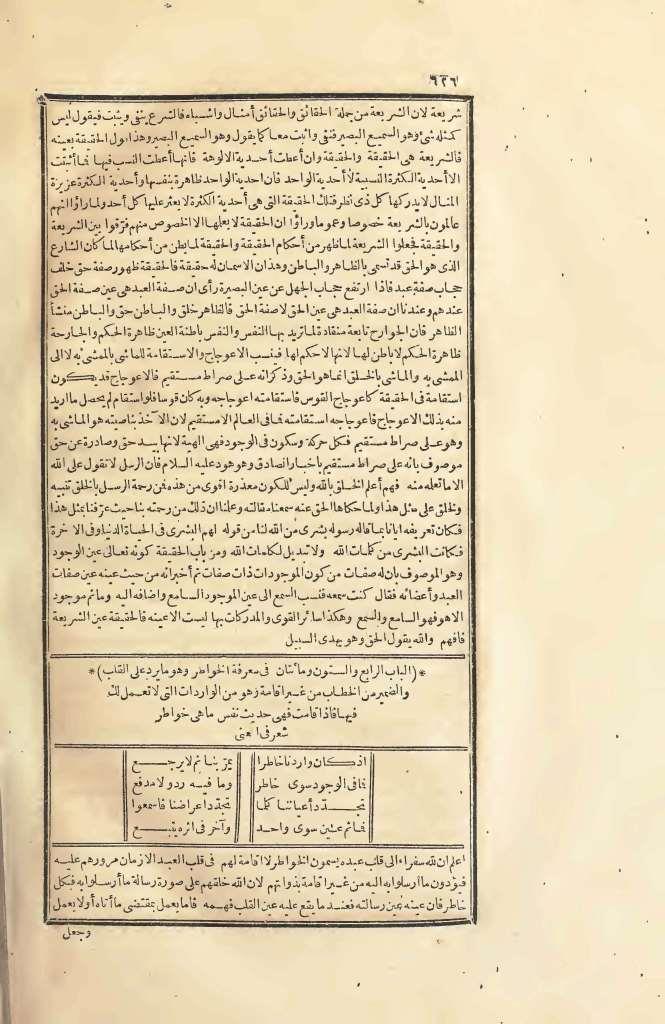 ٦٢٦
شريعة لان الشريعة من جملة الحقائق والحقائق أمثال واشباه فالشرع ينفى ويثبت فيقول ليس
كمثله شئ وهو السميع البصير فنفى واثبت معا كما يقول وهو السميع البصير وهذا قول الحقيقة بعينه
فالشريعة هى الحقيقة والحقيقة وان أعطت أحدية الالوهة فانها أعطت النسب فيها فما أثبتت
الا أحدية الكثرة النسبية لا أحدية الواحد فان احدية الواحد ظاهرة بنفسها وأحدية الكثرة عزيزة
المنال لا يدركها كل ذى نظر فتلك الحقيقة التى هى أحدية الكثرة لا يعثر عليها كل أحد ولما رأوا انهم
عالمون بالشريعة خصوصا وعموما ورأوا ان الحقيقة لا يعلمها الا الخصوص منهم فرقوا بين الشريعة
والحقيقة فجعلوا الشريعة لما ظهر من أحكام الحقيقة والحقيقة لما بطن من أحكامها لما كان الشارع
الذى هو الحق قد تسمى بالظاهر والباطن وهذان الاسمان له حقيقة فالحقيقة ظهور صفة حق خلف
حجاب صفة عبد فاذا ارتفع حجاب الجهل عن عين البصيرة رأى ان صفة العبد هى عين صفة الحق
عندهم وعندنا ان صفة العبد هى عين الحق لا صفة الحق فالظاهر خلق والباطن حق والباطن منشأ
الظاهر فان الجوارح تابعة منقادة لما تريد بها النفس والنفس باطنة العين ظاهرة الحكم والجارحة
ظاهرة الحكم لا باطن لها لانها لا حكم لها فينسب الاعوجاج والاستقامة للماشى بالممشى به لا الى
الممشى به والماشى بالخلق انما هو الحق وذكر انه على صراط مستقيم فالاعوجاج قد يكون
استقامة فى الحقيقة كاعوجاج القوس فاستقامته اعوجاجه وبه كان قوسا فلو استقام لم يحصل ما اريد
منه بذلك الاعوجاج فاعوجاجه استقامته فما فى العالم الا مستقيم لان الآخذ بناصيته هو الماشى به
وهو على صراط مستقيم فكل حركة وسكون فى الوجود فهى الهية لانها بيد حق وصادرة عن حق
موصوف بانه على صراط مستقيم باخبار الصادق وهو هود عليه السلام فان الرسل لا تقول على الله
الا ما تعلمه منه فهم أعلم الخلق بالله وليس للكون معذرة اقوى من هذه فمن رحمة الرسل بالخلق تنبيه
الخلق على مثل هذا ولما حكاها الحق عنه سمعنا مقالته وعلمنا ان ذلك من رحمته بنا حيث عرفنا بمثل هذا
فكان تعريفه ايانا بما قاله رسوله بشرى من الله لنا من قوله لهم البشرى فى الحياة الدنيا وفى الآخرة
فكانت البشرى من كلمات الله ولا تبديل لكلمات الله ومن باب الحقيقة كونه تعالى عين الوجود
وهو الموصوف بان له صفات من كون الموجودات ذات صفات ثم أخبر انه من حيث عينه عين صفات
العبد وأعضائه فقال كنت سمعه فنسب السمع الى عين الموجود السامع واضافه اليه وما ثم موجود
الا هو فهو السامع والسمع وهكذا سائر القوى والمدركات بها ليست الا عينه فالحقيقة عين الشريعة
فافهم والله يقول الحق وهو يهدى السبيل
* (الباب الرابع والستون ومائتان فى معرفة الخواطر وهو ما يرد على القلب) *
والضمير من الخطاب من غير اقامة وهو من الواردات التى لا تعمل لك
فيها فاذا قامت فهى حديث نفس ما هى خواطر
شعر فى المعنى
اذ كان واردنا خاطرا يمر بنا ثم لا يرجع
فما فى الوجود سوى خاطر وما فيه رد ولا مدفع
تجدد أعياننا كلما تجدد اعراضنا فاسمعوا
فما ثم عين سوى واحد وآخر فى اثره يتبع
اعلم ان لله سفراء الى قلب عبده يسمون الخواطر لا اقامة لهم فى قلب العبد الا زمان مرورهم عليه
فيؤدون ما أرسلوا به اليه من غير اقامة بذواتهم لان الله خلقهم على صورة رسالة ما أرسلوا به فكل
خاطر فان عينه عين رسالته فعند ما يقع عليه عين القلب فهمه فاما يعمل بمقتضى ما أتاه أو لا يعمل
وجعل